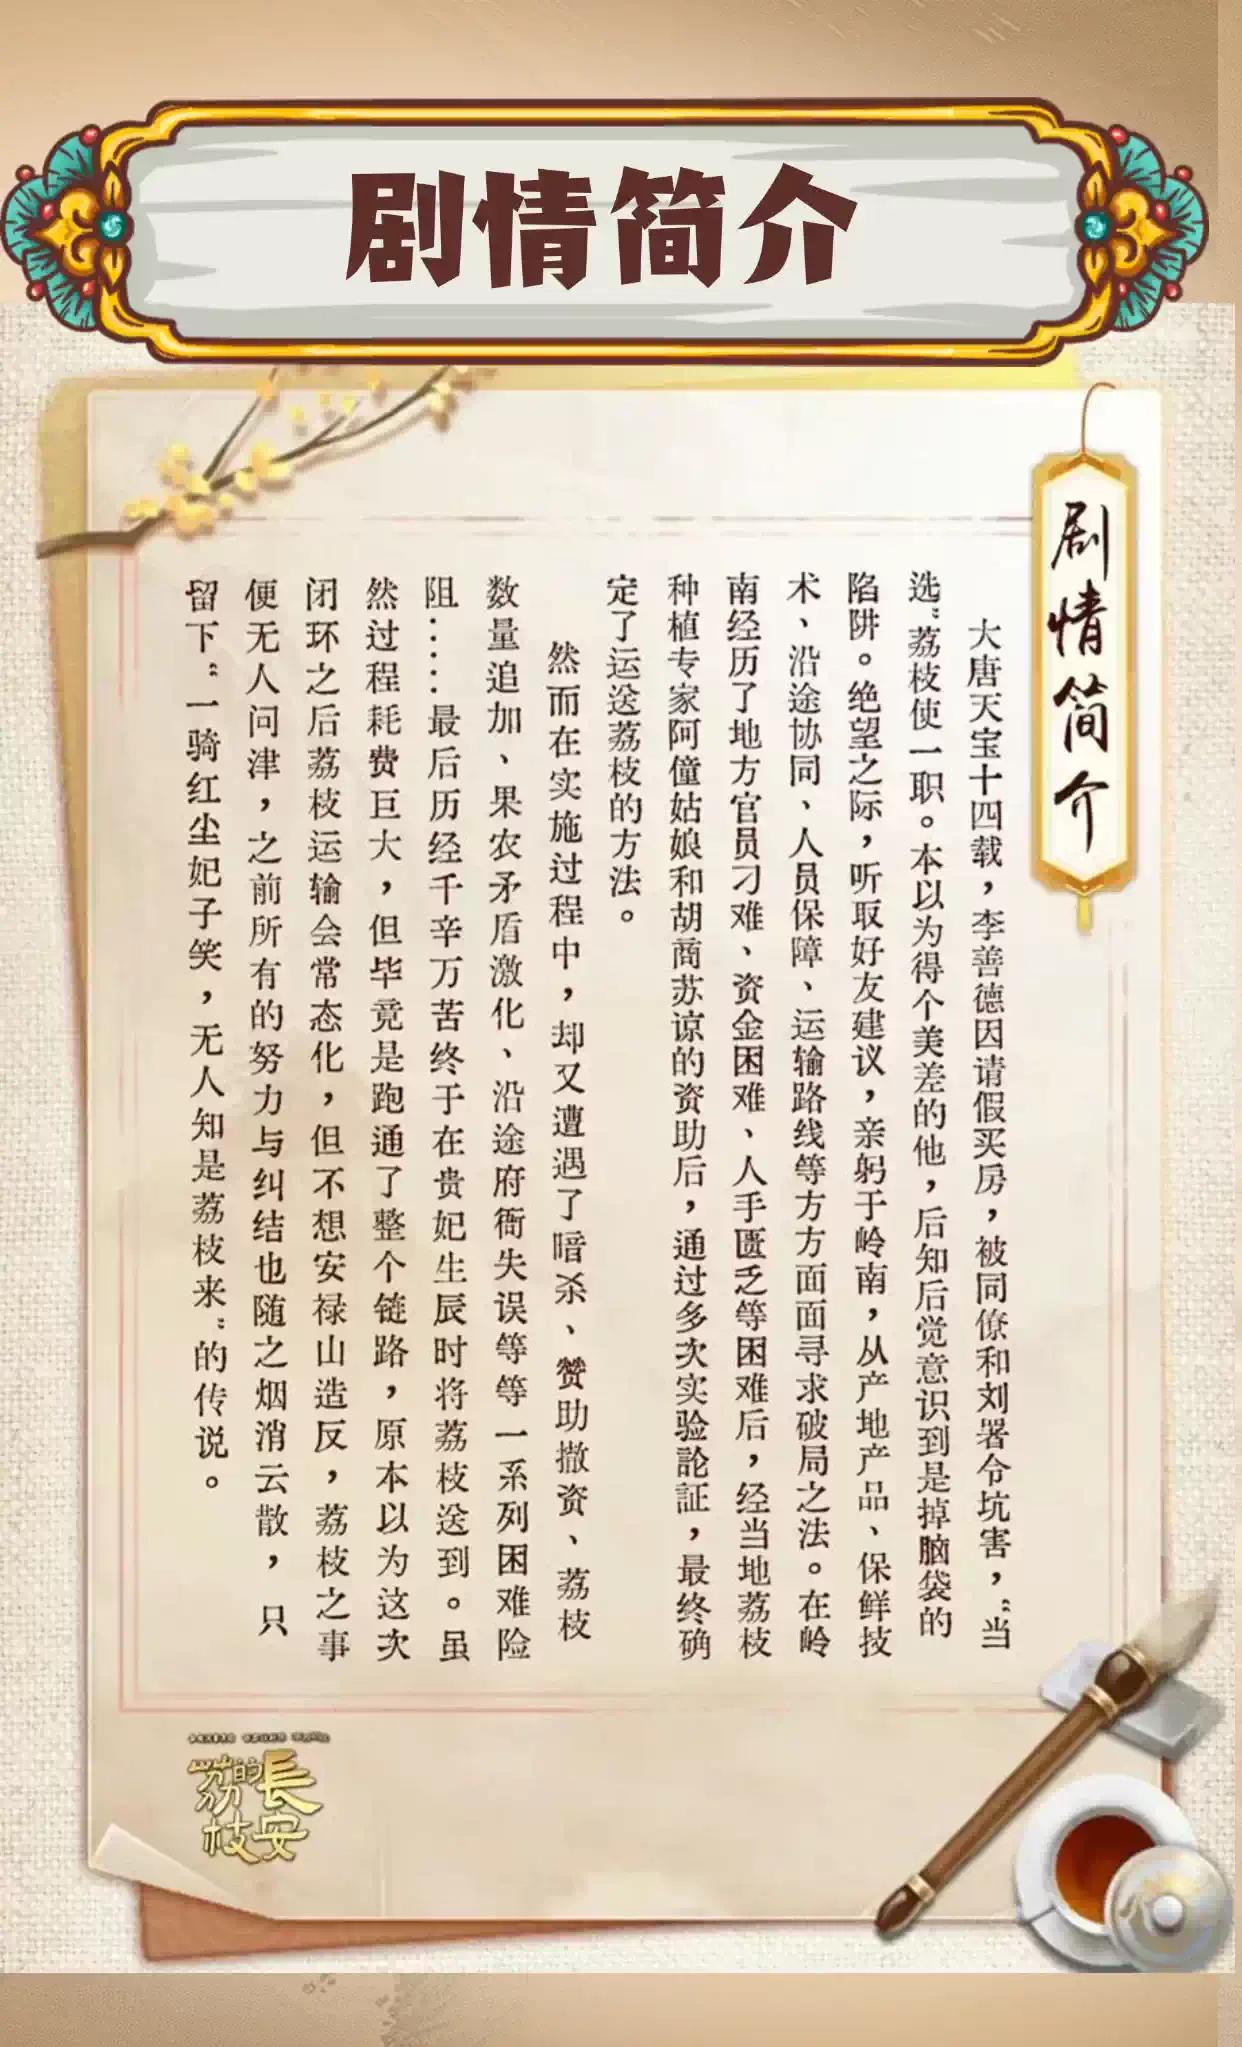 剧情简介
剧情简介
大唐天宝十四载，李善德因请假买房，被同僚和刘署令坑害，“当
选”荔枝使一职。本以为得个美差的他，后知后觉意识到是掉脑袋的
陷阱。绝望之际，听取好友建议，亲躬于岭南，从产地产品、保鲜技
术、沿途协同、人员保障、运输路线等方方面面寻求破局之法。在岭
南经历了地方官员刁难、资金困难、人手匮乏等困难后，经当地荔枝
种植专家阿僮姑娘和胡商苏谅的资助后，通过多次实验論証，最终确
定了运送荔枝的方法。
然而在实施过程中，却又遭遇了暗杀、赞助撤资、荔枝
数量追加、果农矛盾激化、沿途府衙失误等等一系列困难险
阻……最后历经千辛万苦终于在贵妃生辰时将荔枝送到。虽
然过程耗费巨大，但毕竟是跑通了整个链路，原本以为这次
闭环之后荔枝运输会常态化，但不想安禄山造反，荔枝之事
便无人问津，之前所有的努力与纠结也随之烟消云散，只
留下“一骑红尘妃子笑，无人知是荔枝来”的传说。
長安
的荔枝